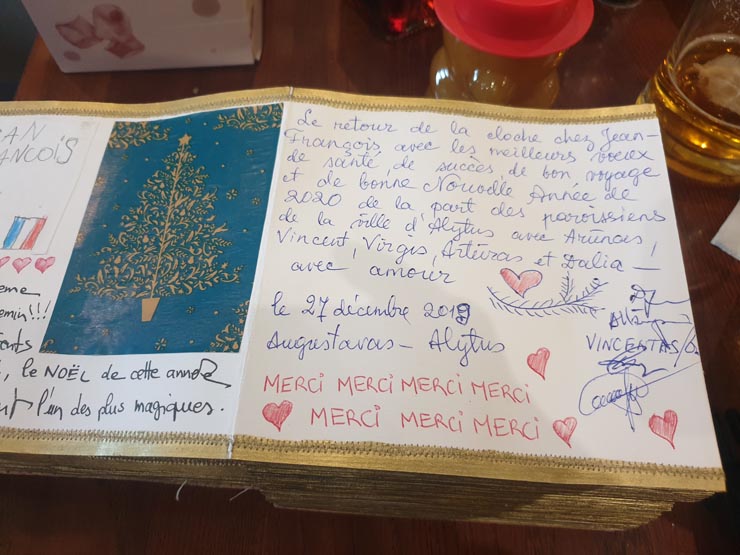 AN
ANCOIS
eme
emin!!!
ants
, le NOËL de cette année
nt l'un des plus magiques.
Le retour de la cloche chez Jean-
François avec les meilleurs voeux
de santé, de succès, de bon voyage
et de bonne Nouvelle Année de
2020 de la part des paroissiens
de la ville d'Alytus avec Arūnas,
Vincent, Virgis, Artūras et Dalia —
avec amour
le 27 décembre 2019
Augustavas — Alytus
VINCENTAS
MERCI MERCI MERCI MERCI
MERCI MERCI MERCI